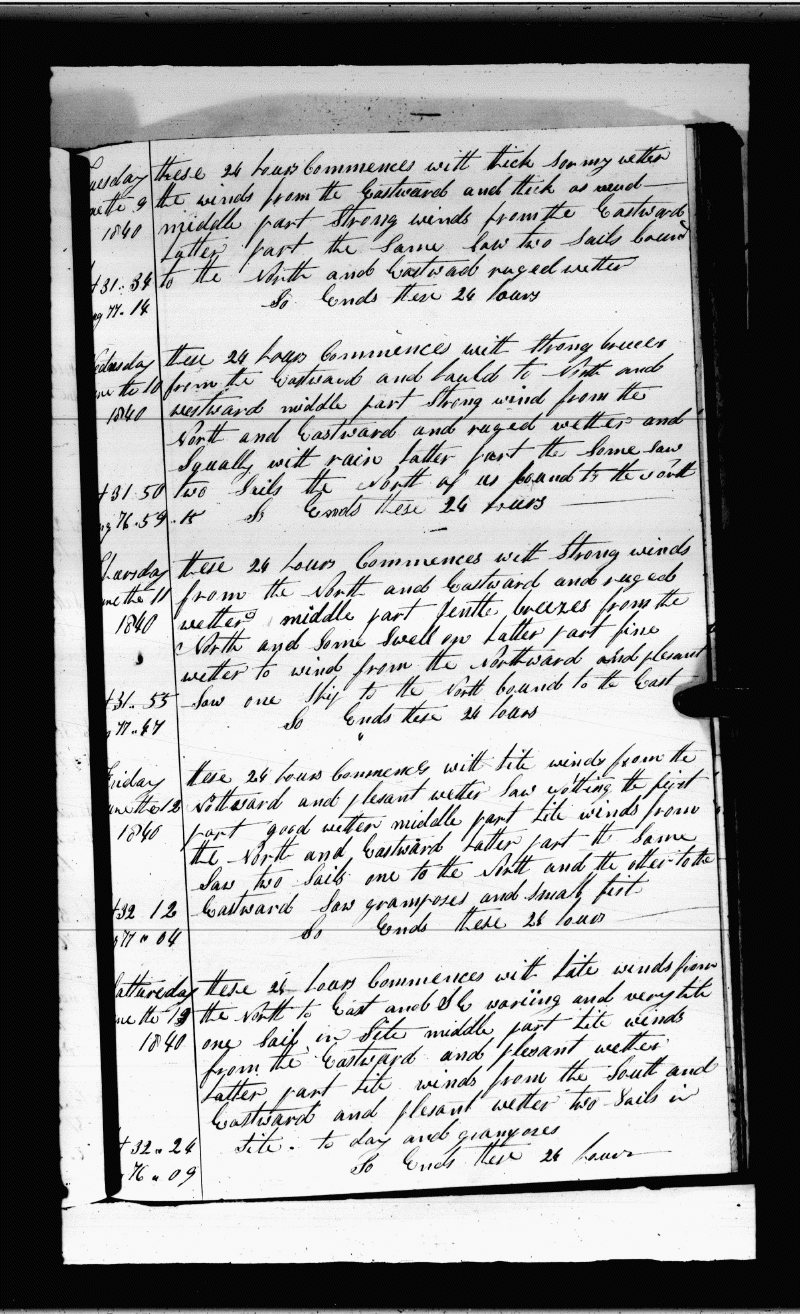 uesday these 24 hours Commences with thick Stormy wetter
une the 9 the winds from the Eastward and thick as mud
1840 middle part Strong winds from the Eastward
Latter part the Same Saw two Sails bound
t 31.. 34 to the North and Eastward ruged wetter
ng 77. 14 So Ends these 24 hours
ednesday these 24 hours Commences with Strong breezes
une the 10 from the Eastward and hauld to North and
1840 westward middle part Strong wind from the
North and Eastward and ruged wetter and
Squally with rain Latter part the Same Saw
t 31. 50 two Sails the North of us bound to the North
ng 76. 59. 15 So Ends these 24 hours
hursday these 24 hours Commences with Strong winds
une the 11 from the North and Eastward and ruged
1840 wetter middle part Jentle breezes from the
North and Some Swell on Latter part fine
wetter to wind from the Northward and plesant
t 31. 55 Saw one Ship to the North bound to the East
77. 47 So Ends these 24 hours
Friday these 24 hours Commences with Lite winds from the
une the 12 Nothward and plesant wetter Saw nothing the first
1840 part good wetter middle part Lite winds from
the North and Eastward Latter part th Same
Saw two Sails one to the North and the other to the
t 32 12 Eastward Saw gramposes and small fish
77 " 04 So Ends these 24 hours
Satturday these 24 hours Commences with Lite winds from
une the 13 the North to East and S E variing and very lite
1840 one Sail in Site middle part Lite winds
from the Eastward and plesant wetter
Latter part Lite winds from the South and
Eastward and plesant wetter two Sails in
t 32 " 24 Site. to day and gramposes
76 " 09 So Ends these 24 hours